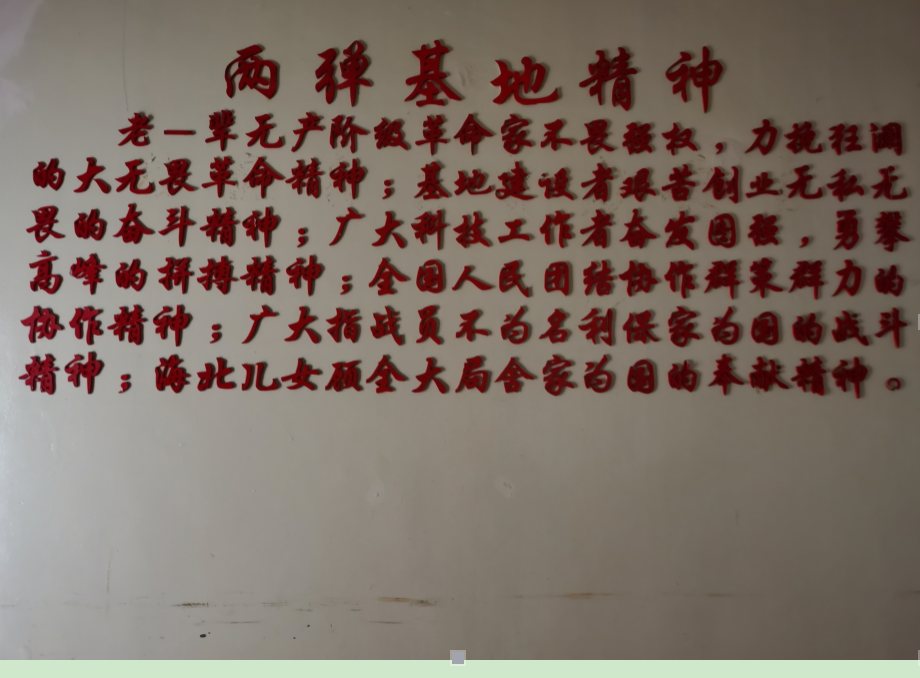 两弹基地精神
老一辈无产阶级革命家不畏强权，力挽狂澜
的大无畏革命精神；基地建设者艰苦创业无私无
畏的奋斗精神；广大科技工作者奋发图强，勇攀
高峰的拼搏精神；全国人民团结协作群策群力的
协作精神；广大指战员不为名利保家为国的战斗
精神；海北儿女顾全大局舍家为国的奉献精神。